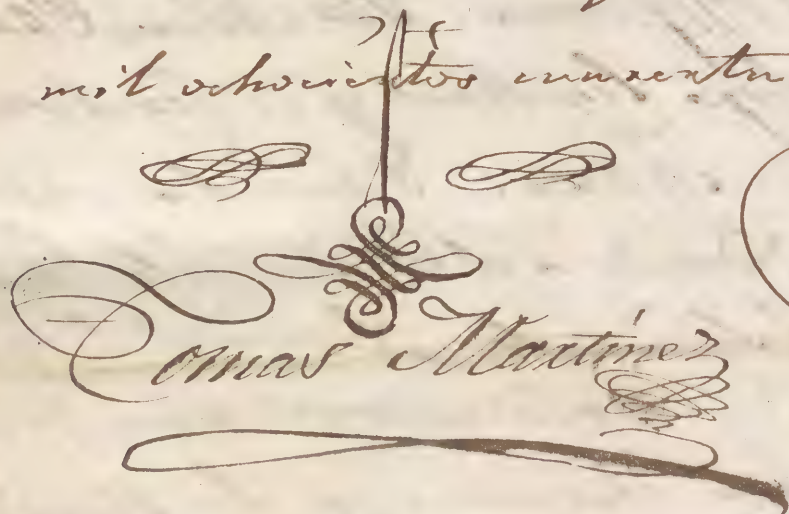 mil ochocientos cuarenta
Tomas Martinez